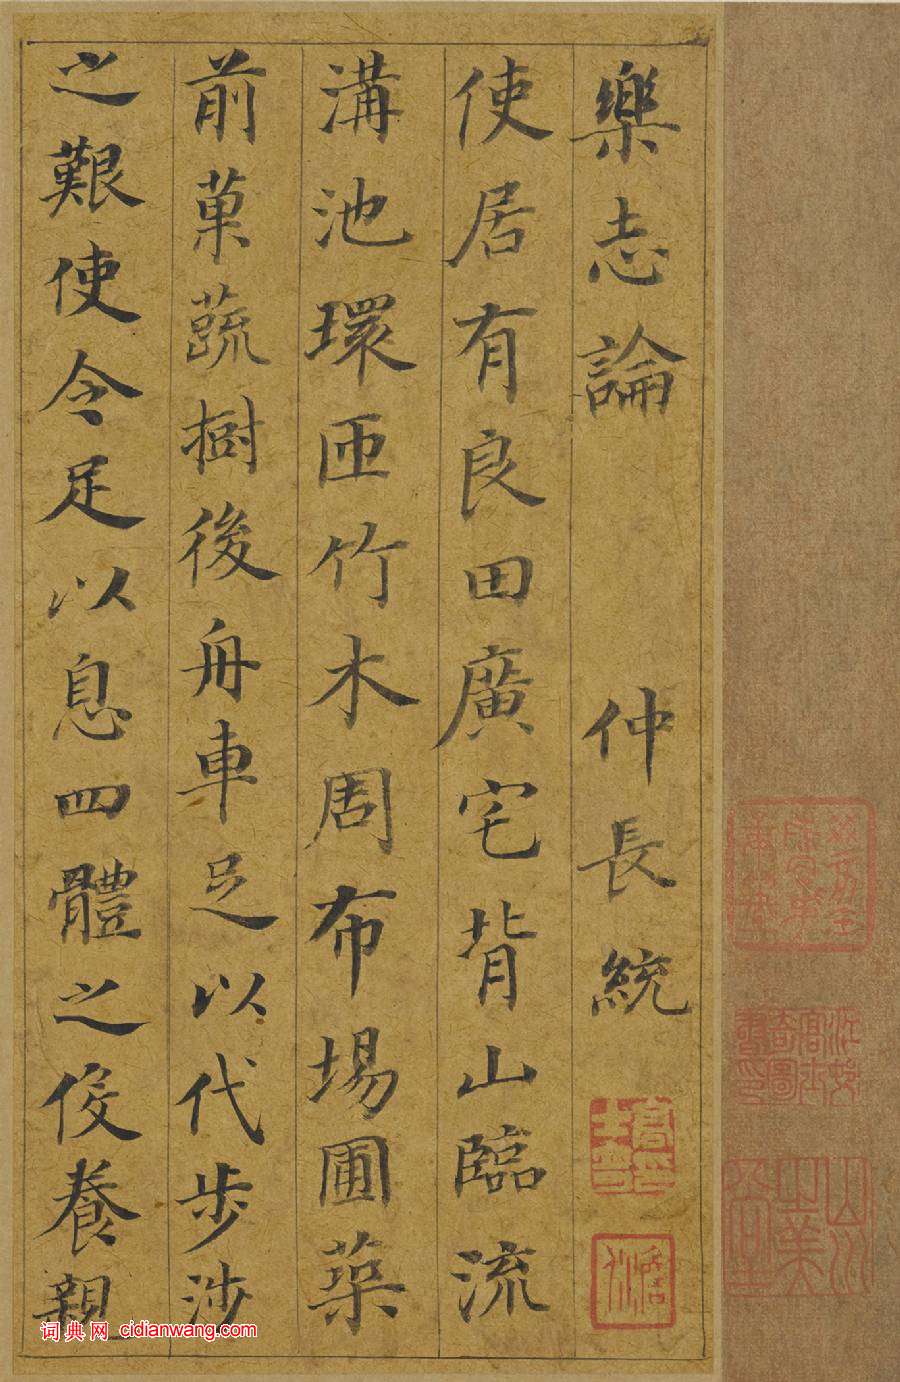 樂志論 仲長統
使居有良田廣宅背山臨流
溝池環匝竹木周布場圃築
前菓蔬樹後舟車足以代步涉
之艱使令足以息四體之役養親
词典网 cidianwang.com